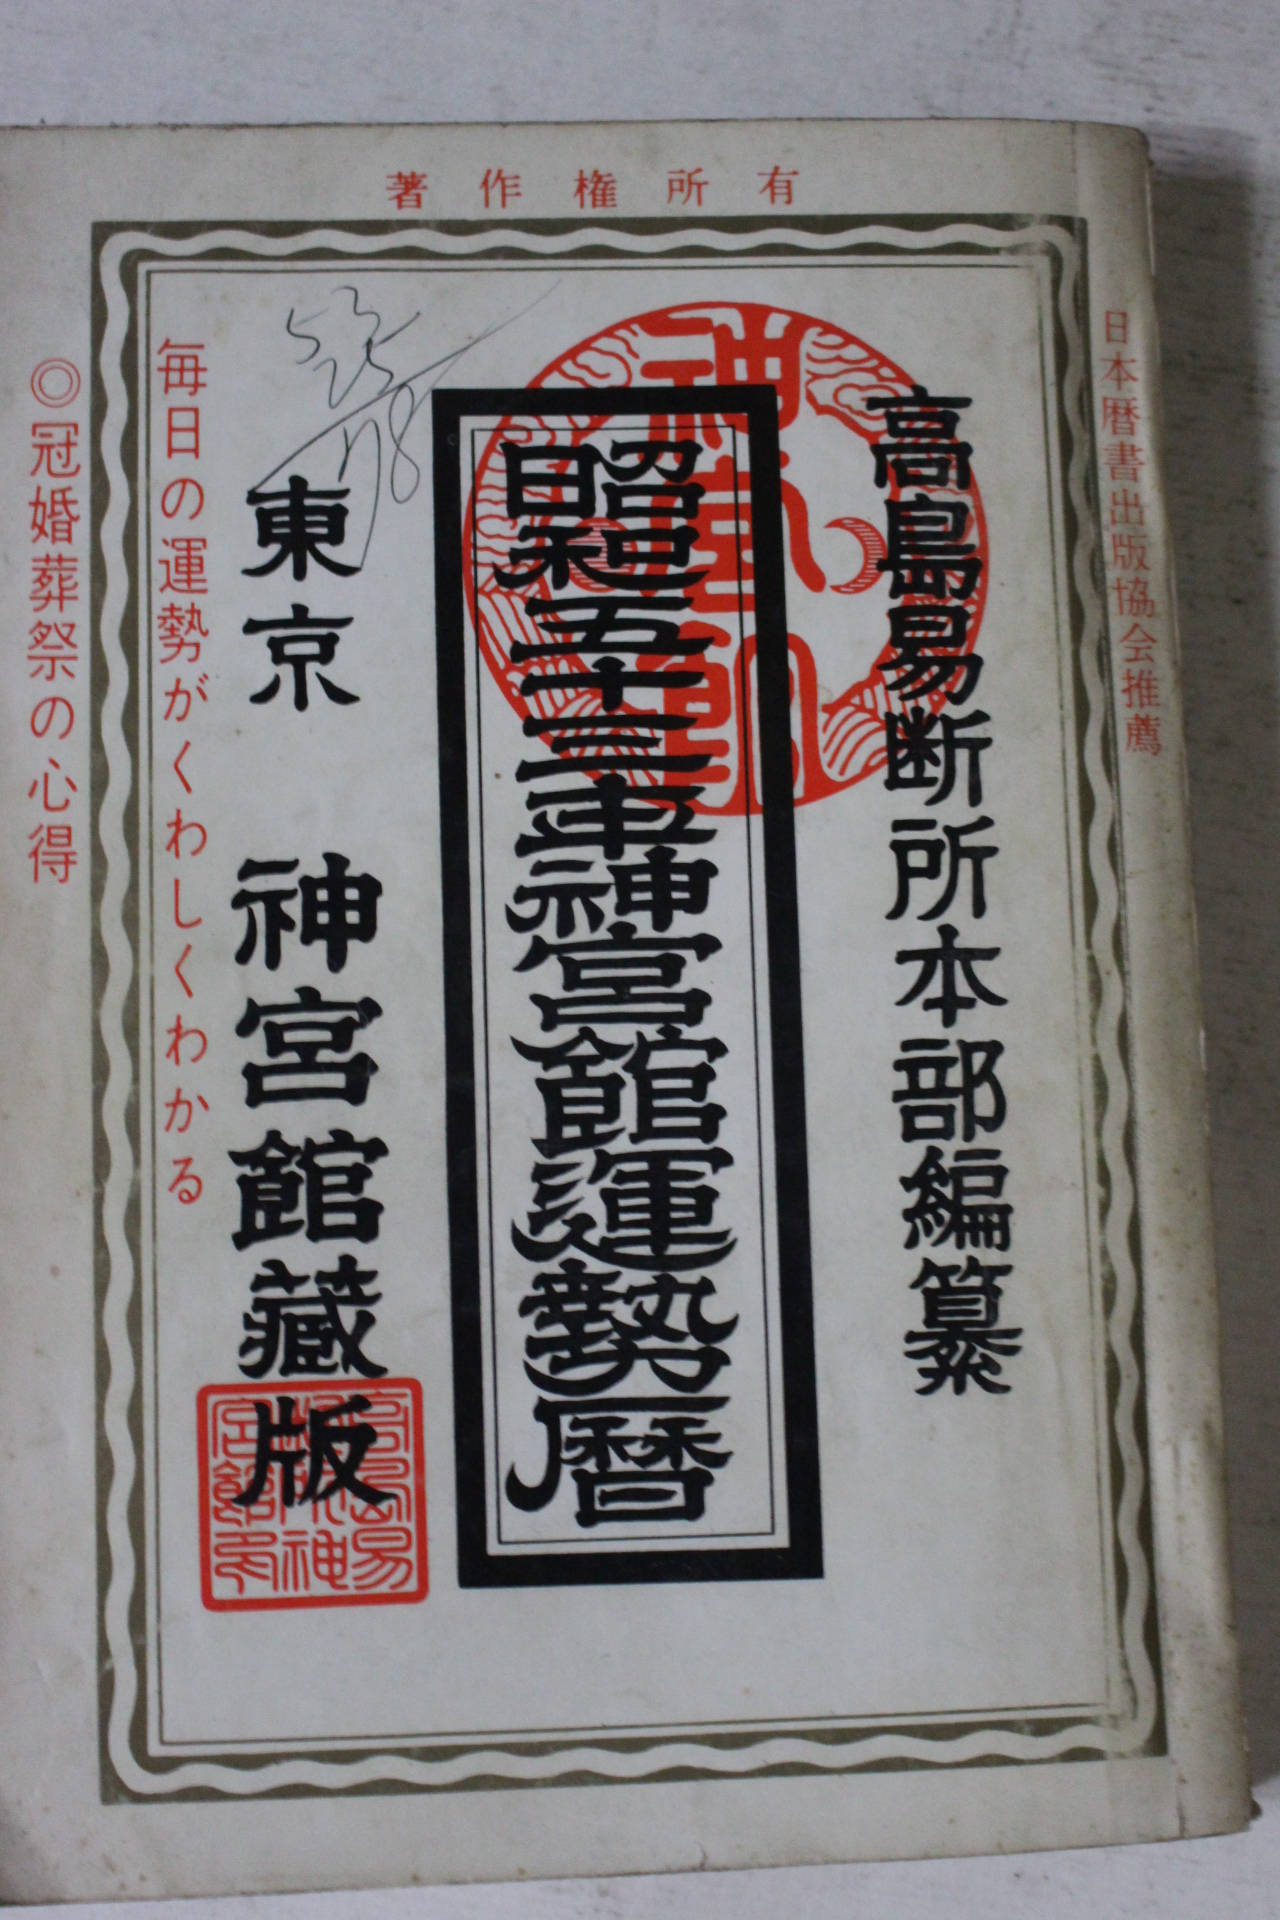 著作権所有
日本暦書出版協会推薦
高島易断所本部編纂
昭和五十三年神宮館運勢暦
東京 神宮館蔵版
毎日の運勢がくわしくわかる
◎冠婚葬祭の心得